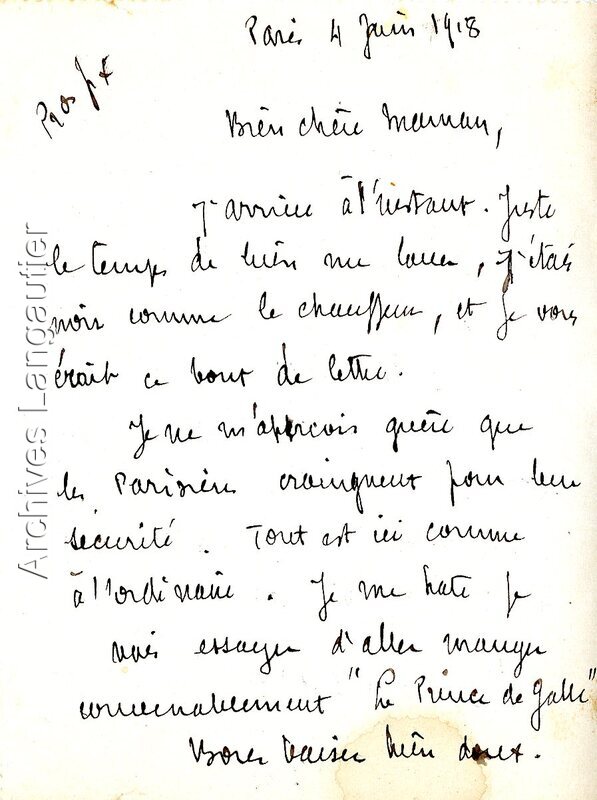 Paris 4 Juin 1918
Bien chère Maman,
J'arrive à l'instant. Juste
le temps de bien me laver, j'étais
noir comme le chauffeur, et je vous
écrait ce bout de lettre.
Je ne m'aperçois guère que
les Parisiens craingnent pour leur
sécurité. Tout est ici comme
à l'ordinaire. Je me hate je
vais essayer d'aller manger
convenablement "Le Prince de Galle"
baiser bien doux.
Archives Langautier